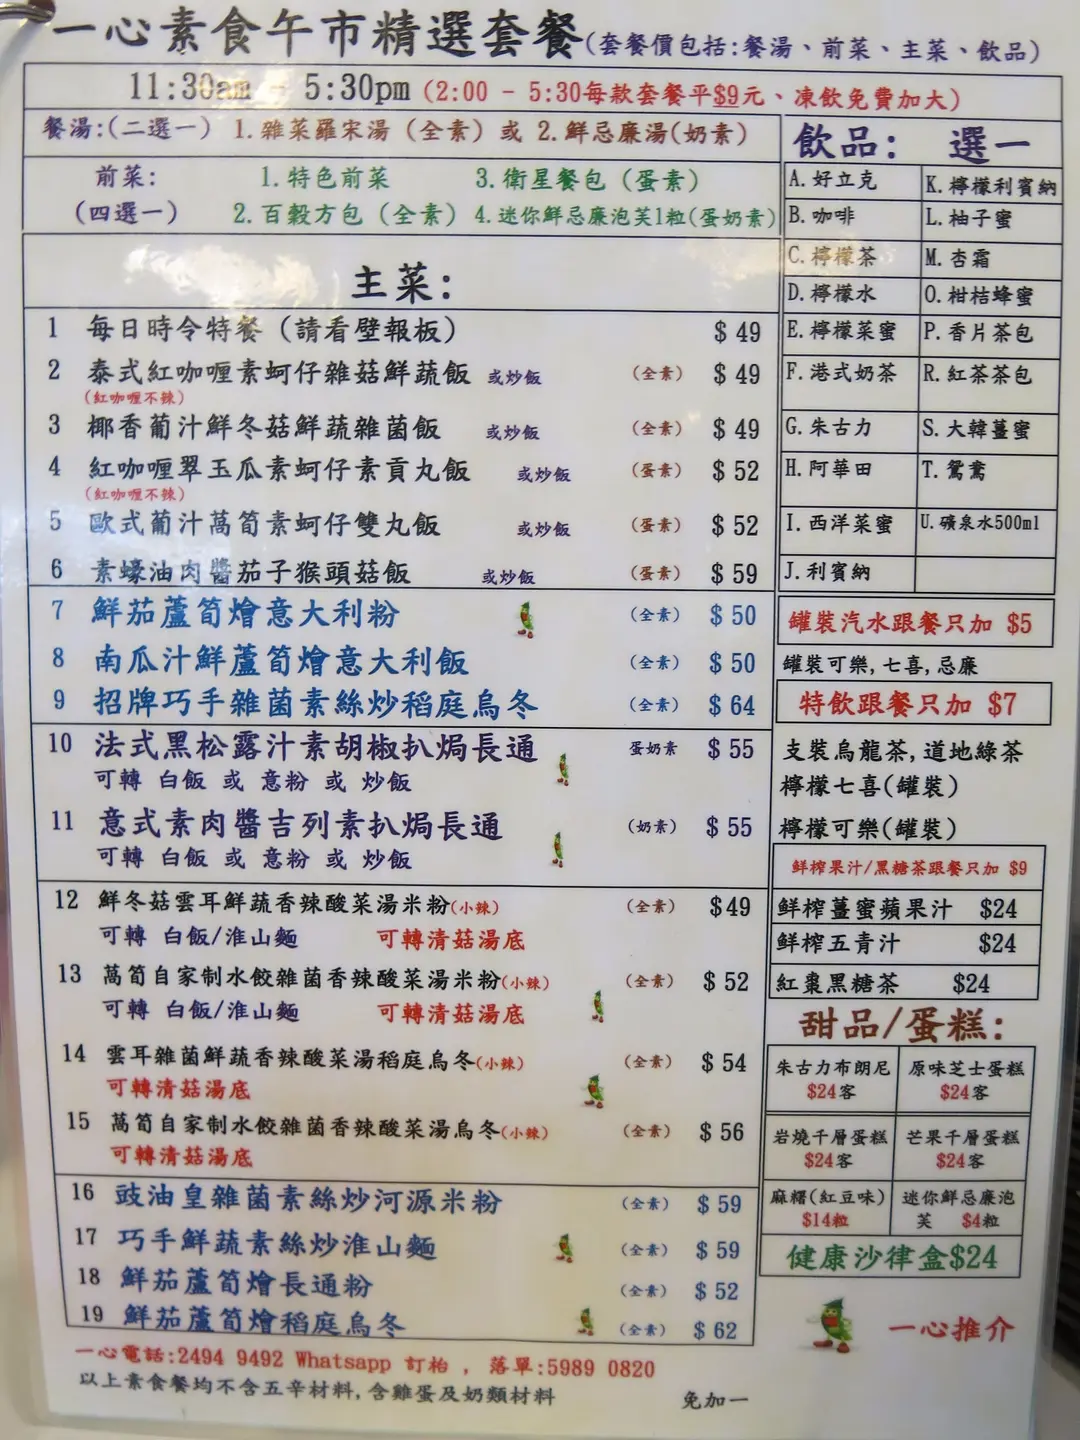 一心素食午市精選套餐(套餐價包括:餐湯、前菜、主菜、飲品)
11:30am - 5:30pm (2:00 - 5:30每款套餐平$9元、凍飲免費加大)
餐湯:(二選一) 1.雜菜羅宋湯 (全素) 或 2.鮮忌廉湯(奶素)
前菜: 1.特色前菜 3.衛星餐包 (蛋素)
(四選一) 2.百穀方包 (全素) 4.迷你鮮忌廉泡芙1粒(蛋奶素)
主菜:
1 每日時令特餐 (請看壁報板) $ 49
2 泰式紅咖喱素蚵仔雜菇鮮蔬飯 或炒飯 (全素) $ 49
(紅咖喱不辣)
3 椰香葡汁鮮冬菇鮮蔬雜菌飯 或炒飯 (全素) $ 49
4 紅咖喱翠玉瓜素蚵仔素貢丸飯 或炒飯 (蛋素) $ 52
(紅咖喱不辣)
5 歐式葡汁萵筍素蚵仔雙丸飯 或炒飯 (蛋素) $ 52
6 素蠔油肉醬茄子猴頭菇飯 或炒飯 (蛋素) $ 59
7 鮮茄蘆筍燴意大利粉 (全素) $ 50
8 南瓜汁鮮蘆筍燴意大利飯 (全素) $ 50
9 招牌巧手雜菌素絲炒稻庭烏冬 (全素) $ 64
10 法式黑松露汁素胡椒扒焗長通 蛋奶素 $ 55
可轉 白飯 或 意粉 或 炒飯
11 意式素肉醬吉列素扒焗長通 (奶素) $ 55
可轉 白飯 或 意粉 或 炒飯
12 鮮冬菇雲耳鮮蔬香辣酸菜湯米粉(小辣) (全素) $49
可轉 白飯/淮山麵 可轉清菇湯底
13 萵筍自家制水餃雜菌香辣酸菜湯米粉(小辣) (全素) $ 52
可轉 白飯/淮山麵 可轉清菇湯底
14 雲耳雜菌鮮蔬香辣酸菜湯稻庭烏冬(小辣) (全素) $ 54
可轉清菇湯底
15 萵筍自家制水餃雜菌香辣酸菜湯烏冬(小辣) (全素) $ 56
可轉清菇湯底
16 豉油皇雜菌素絲炒河源米粉 (全素) $ 59
17 巧手鮮蔬素絲炒淮山麵 (全素) $ 59
18 鮮茄蘆筍燴長通粉 (全素) $ 52
19 鮮茄蘆筍燴稻庭烏冬 (全素) $ 62
一心電話:2494 9492 Whatsapp 訂枱 , 落單:5989 0820
以上素食餐均不含五辛材料,含雞蛋及奶類材料 免加一
飲品: 選一
A.好立克 K.檸檬利賓納
B.咖啡 L.柚子蜜
C.檸檬茶 M.杏霜
D.檸檬水 O.柑桔蜂蜜
E.檸檬菜蜜 P.香片茶包
F.港式奶茶 R.紅茶茶包
G.朱古力 S.大韓薑蜜
H.阿華田 T.鴛鴦
I.西洋菜蜜 U.礦泉水500ml
J.利賓納
罐裝汽水跟餐只加 $5
罐裝可樂,七喜,忌廉
特飲跟餐只加 $7
支裝烏龍茶,道地綠茶
檸檬七喜(罐裝)
檸檬可樂(罐裝)
鮮榨果汁/黑糖茶跟餐只加 $9
鮮榨薑蜜蘋果汁 $24
鮮榨五青汁 $24
紅棗黑糖茶 $24
甜品/蛋糕:
朱古力布朗尼 原味芝士蛋糕
$24客 $24客
岩燒千層蛋糕 芒果千層蛋糕
$24客 $24客
麻糬(紅豆味) 迷你鮮忌廉泡
$14粒 芙 $4粒
健康沙律盒$24
一心推介